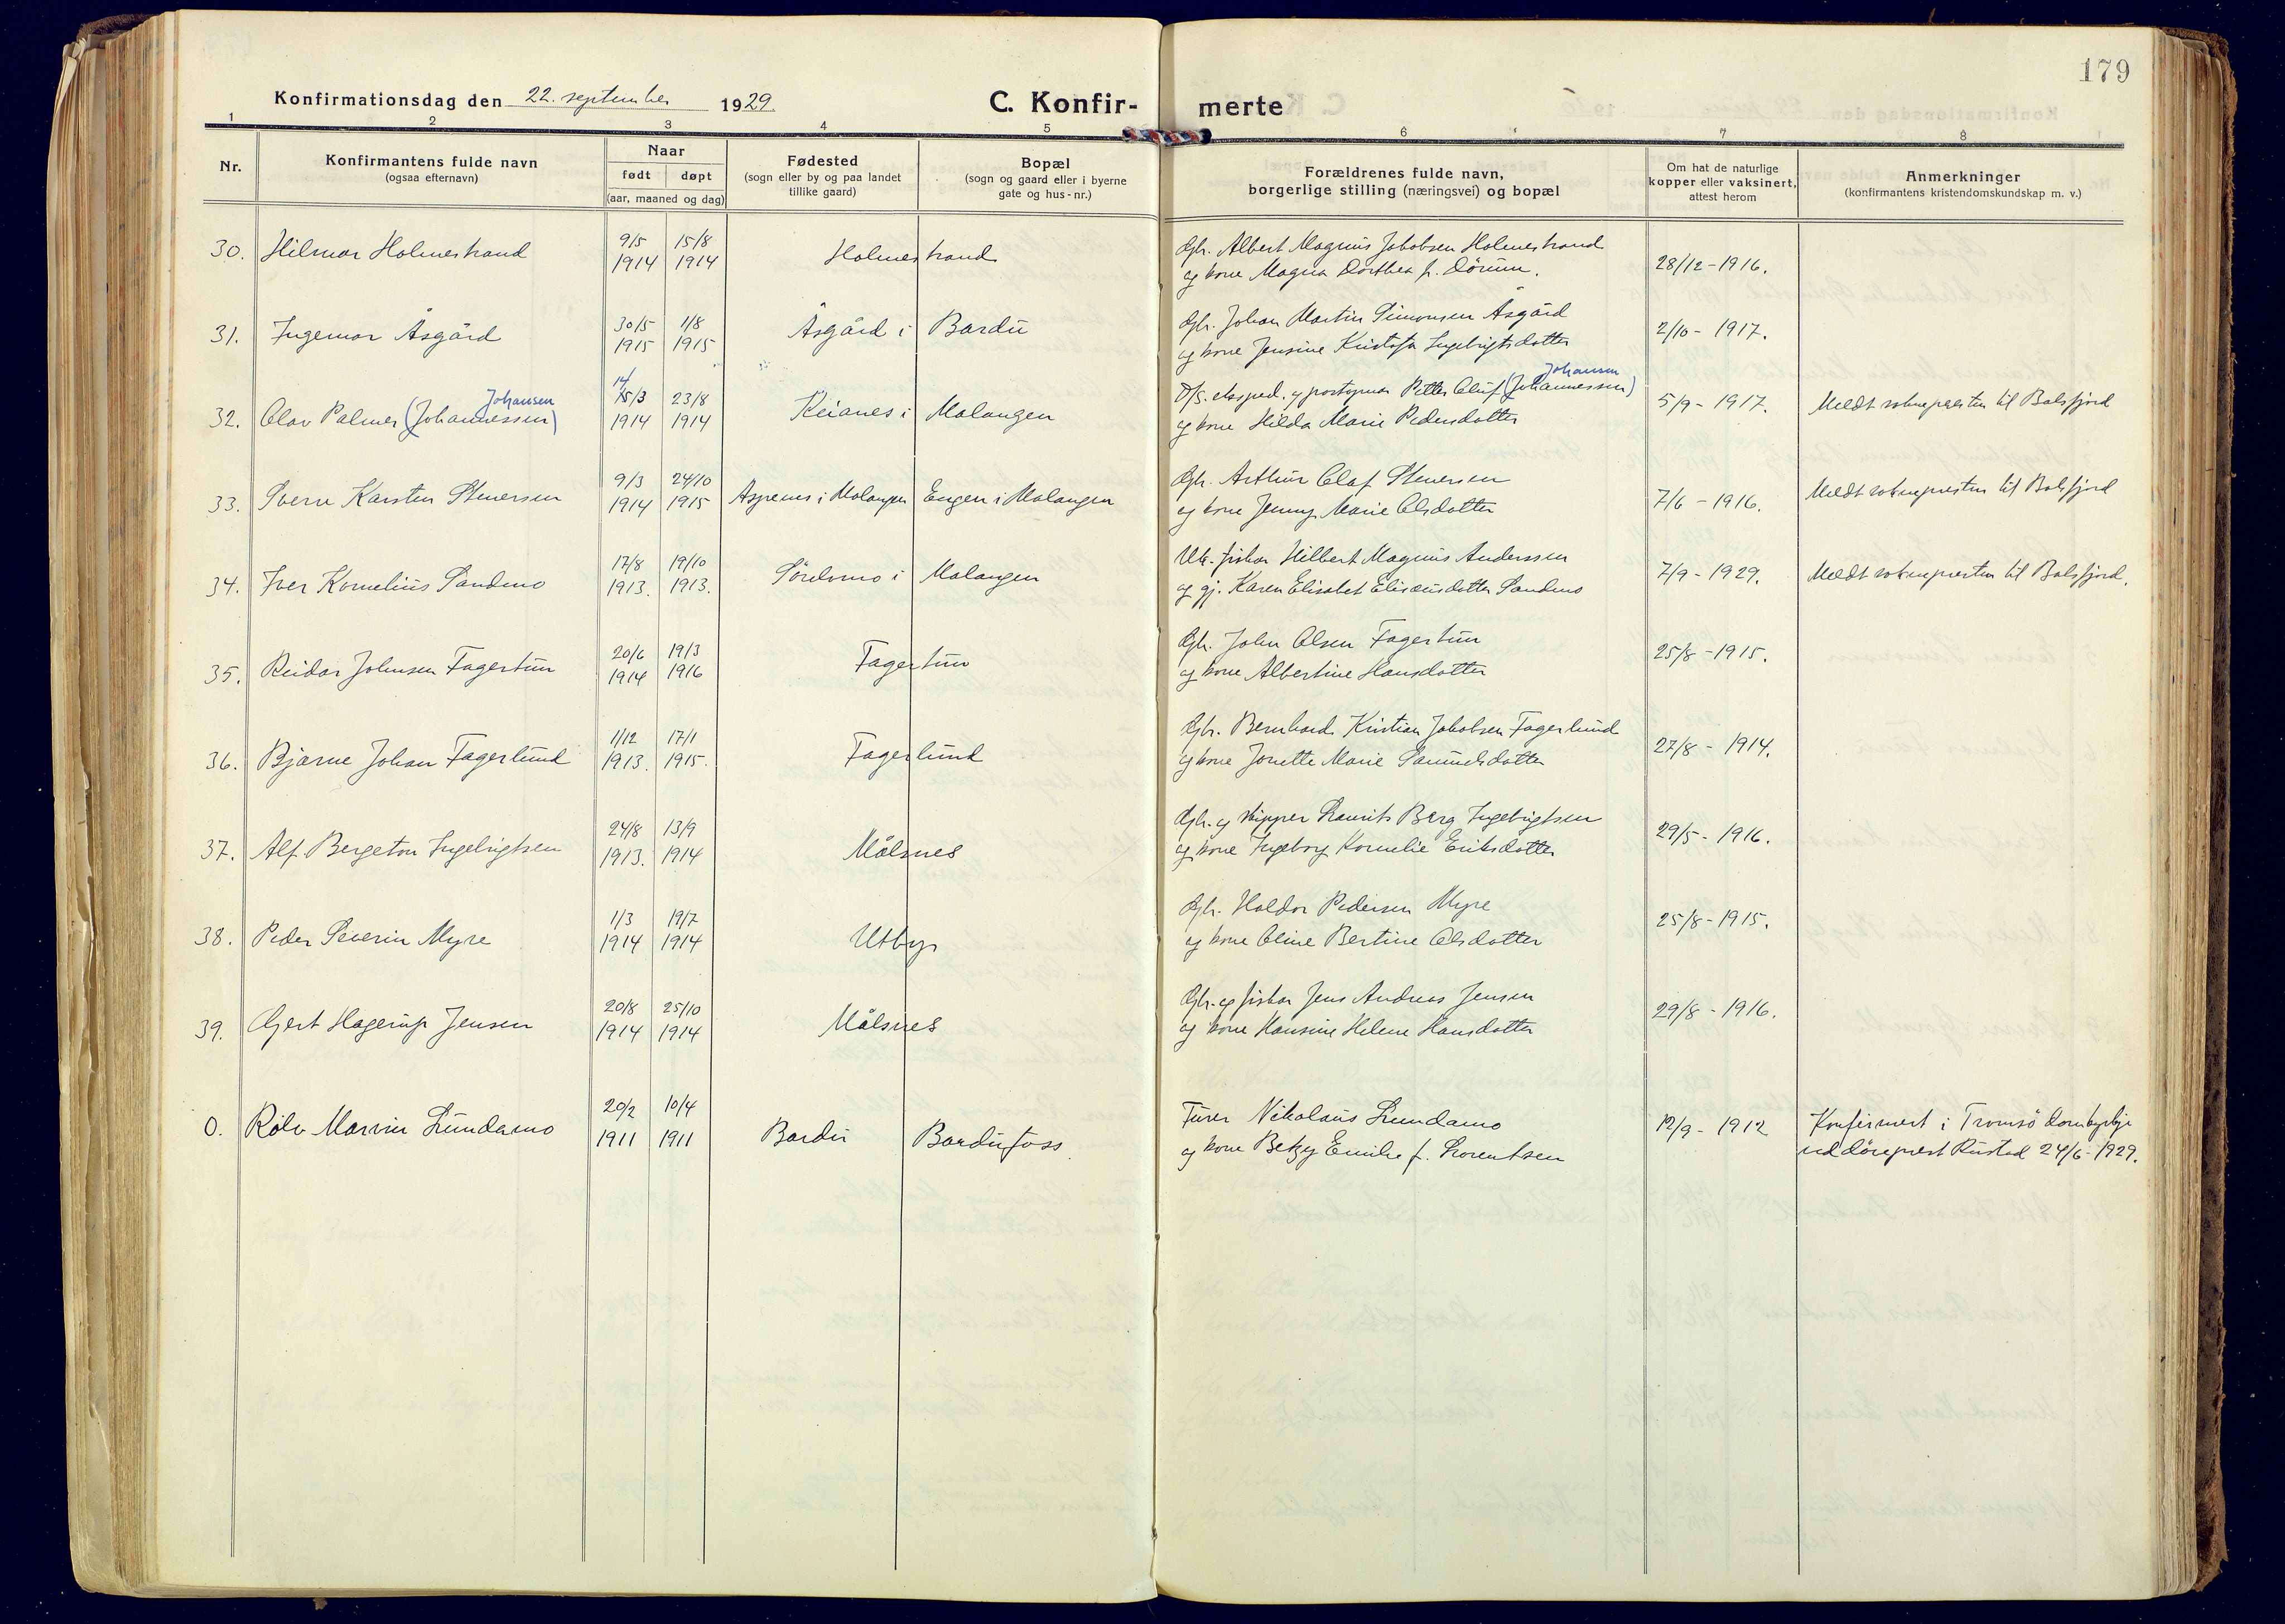 179
Konfirmationsdag den 22. september 1929. C. Konfir- merte
1 2 3 4 5 6 7 8
Nr. Konfirmantens fulde navn (ogsaa efternavn) Naar født døpt (aar, maaned og dag) Fødested (sogn eller by og paa landet tillike gaard) Bopæl (sogn og gaard eller i byerne gate og hus-nr.) Forældrenes fulde navn, borgerlige stilling (næringsvei) og bopæl Om hat de naturlige kopper eller vaksinert, attest herom Anmerkninger (konfirmantens kristendomskundskap m. v.)
30. Hilmar Holmestrand 9/5 1914 15/8 1914 Holmestrand Gbr. Albert Magnus Jakobsen Holmestrand
og kone Magna Dorthea f. Dörum. 28/12-1916.
31. Ingemar Åsgård 30/5 1915 1/8 1915 Åsgård i Bardu Gbr. Johan Martin Simonsen Åsgård
og kone Jensine Kristofa Ingebrigtsdatter 2/10 - 1917.
32. Olav Palmer (Johannessen) Johansen 14/ 15/3 1914 23/8 1914 Keianes i Malangen D/S. eksped. og postopner Petter Oluf (Johannessen) Johansen
og kone Hilda Marie Pedersdatter 5/9 - 1917. Meldt soknepresten til Balsfjord
33. Sverre Karsten Stenersen 9/3 1914 24/10 1915 Aspenes i Malangen Engen i Malangen Gbr. Arthur Olaf Stenersen
og kone Jenny Marie Olsdatter 7/6 - 1916. Meldt soknepresten til Balsfjord
34. Iver Kornelius Sandmo 17/8 1913. 19/10 1913. Sördomo i Malangen Uk. fisker Hilbert Magnus Anderssen
og gj. Karen Elisabet Eliseusdatter Sandmo 7/9 - 1929. Meldt soknepresten til Balsfjord.
35. Reidar Johnsen Fagertun 20/6 1914 19/3 1916 Fagertun Gbr. John Olsen Fagertun
og kone Albertine Hansdatter 25/8 - 1915.
36. Bjarne Johan Fagerlund 1/12 1913. 17/1 1915. Fagerlund Gbr. Bernhard Kristian Jakobsen Fagerlund
og kone Jonette Marie Samuelsdatter 27/8 - 1914.
37. Alf Bergeton Ingebrigtsen 24/8 1913. 13/9 1914 Målsnes Gbr. og skipper Laurits Berg Ingebrigtsen
og kone Ingeborg Kornelie Eriksdatter 29/5 - 1916.
38. Peder Severin Myre 1/3 1914 19/7 1914 Utby Gbr. Haldor Pedersen Myre
og kone Oline Bertine Olsdatter 25/8 - 1915.
39. Gjert Hagerup Jensen 20/8 1914 25/10 1914 Målsnes Gbr. og fisker Jens Andreas Jensen
og kone Hansine Helene Hansdatter 29/8 - 1916.
0. Rolv Marvin Lundamo 20/2 1911 10/4 1911 Bardu Bardufoss Furer Nikolaus Lundamo
og kone Betzy Emilie f. Lorentsen 12/9 - 1912 Konfirmert i Tromsö domkyrkje
ved döveprest Rustad 24/6 - 1929.